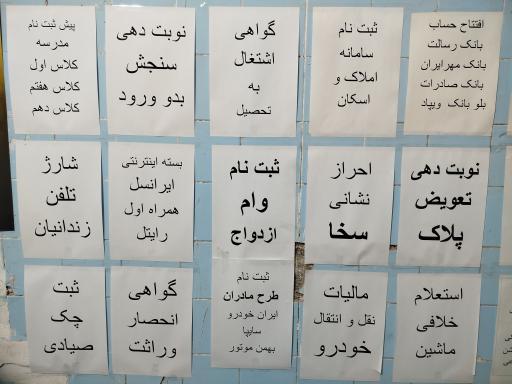 افتتاح حساب
بانک رسالت
بانک مهرایران
بانک صادرات
بلو بانک ویپاد
ثبت نام
سامانه
املاک و
اسکان
گواهی
اشتغال
به
تحصیل
نوبت دهی
سنجش
بدو ورود
پیش ثبت نام
مدرسه
کلاس اول
کلاس هفتم
کلاس دهم
نوبت دهی
تعویض
پلاک
احراز
نشانی
سخا
ثبت نام
وام
ازدواج
بسته اینترنتی
ایرانسل
همراه اول
رایتل
شارژ
تلفن
زندانیان
استعلام
خلافی
ماشین
مالیات
نقل و انتقال
خودرو
ثبت نام
طرح مادران
ایران خودرو
سایپا
بهمن موتور
گواهی
انحصار
وراثت
ثبت
چک
صیادی